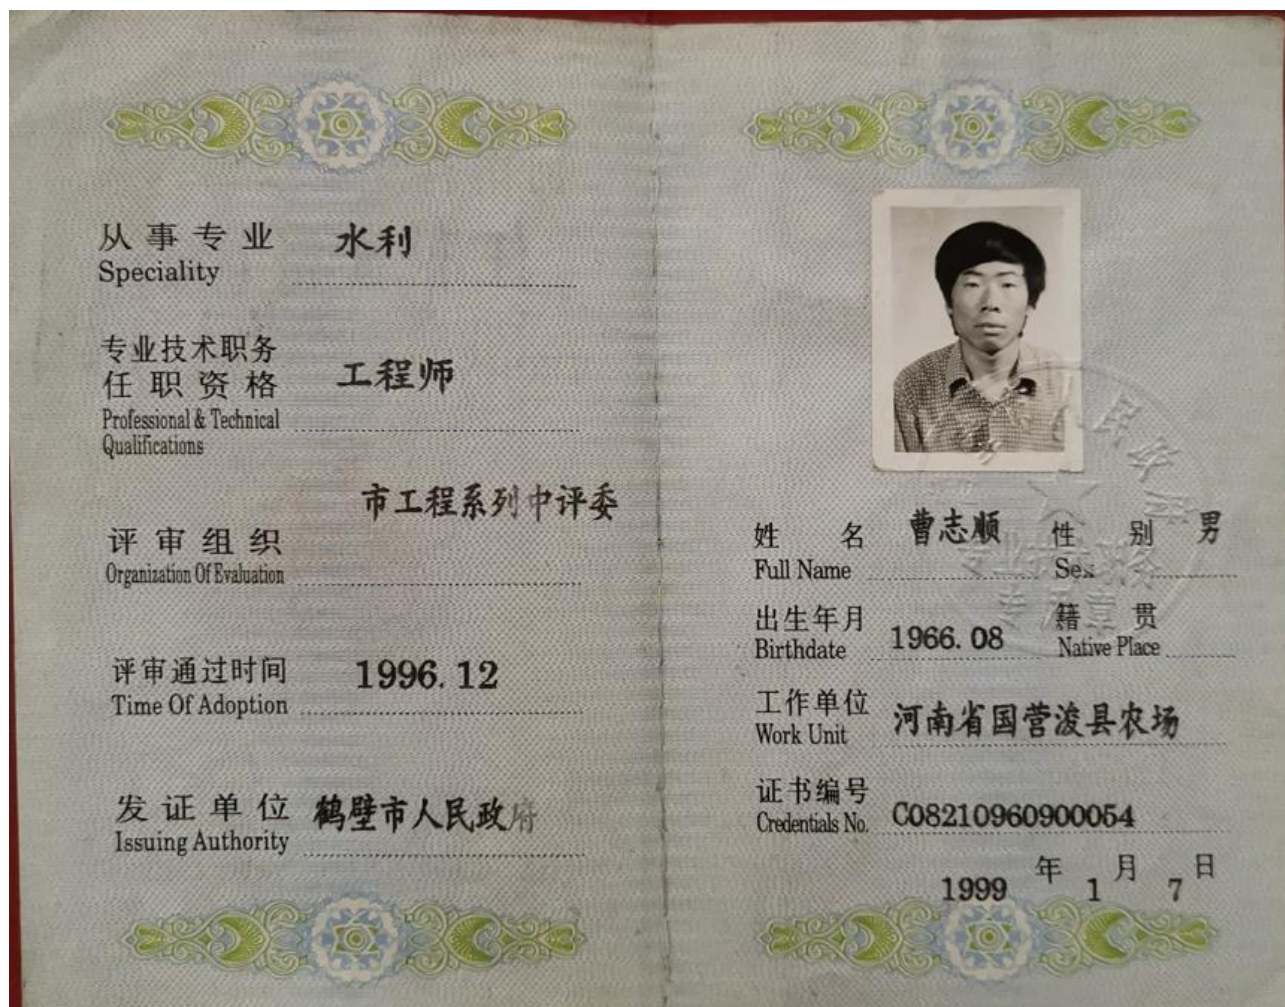 从事专业 水利
Speciality
专业技术职务
任职资格 工程师
Professional & Technical
Qualifications
市工程系列中评委
评审组织
Organization Of Evaluation
评审通过时间 1996.12
Time Of Adoption
发证单位 鹤壁市人民政府
Issuing Authority
姓名 曹志顺 性别 男
Full Name Sex
出生年月 1966.08 籍贯
Birthdate Native Place
工作单位 河南省国营浚县农场
Work Unit
证书编号 C08210960900054
Credentials No.
1999 年 1 月 7 日
人民政府
专业技术职务
专用章